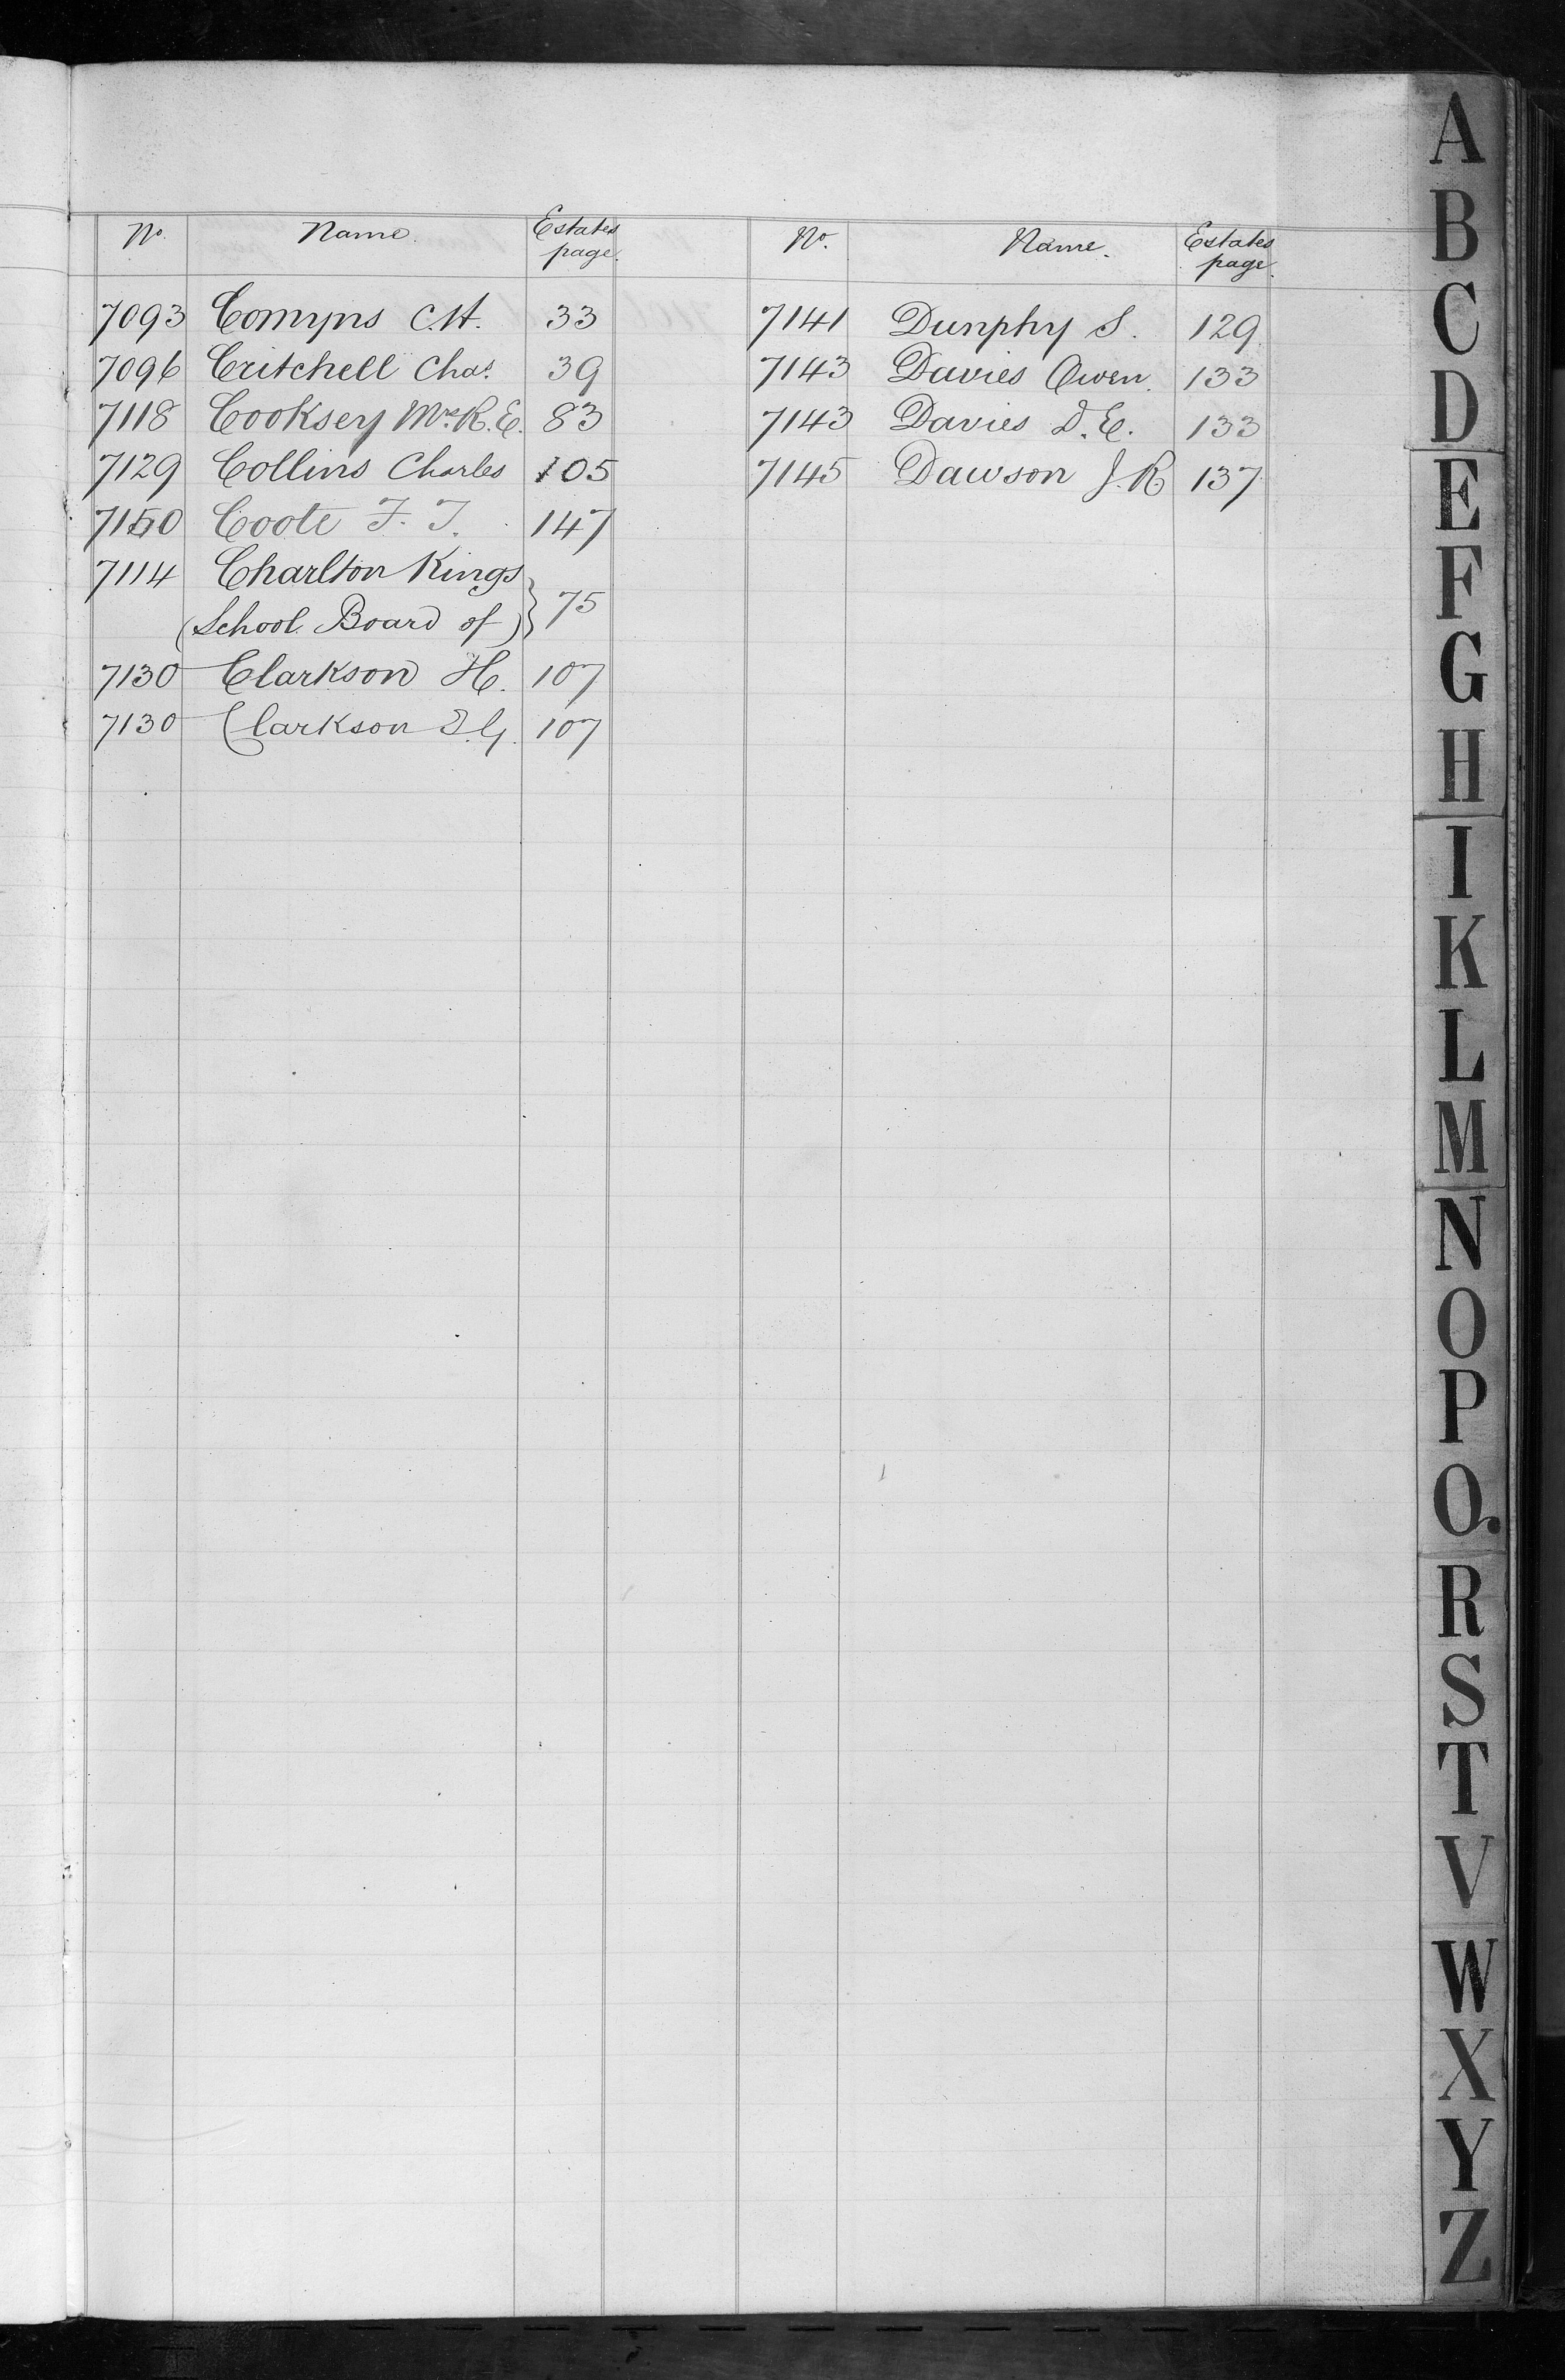 No. Name. Estates page.
7093 Comyns C.H. 33
7096 Critchell Chas. 39
7118 Cooksey Mrs R.E. 83
7129 Collins Charles 105
7150 Coote F. T. 147
7114 Charlton Kings
(School Board of) } 75
7130 Clarkson H. 107
7130 Clarkson E.G. 107
No. Name. Estates page.
7141 Dunphy S. 129
7143 Davies Owen. 133
7143 Davies D.E. 133
7145 Dawson J.R 137
A
B
C
D
E
F
G
H
I
K
L
M
N
O
P
Q.
R
S
T
V
W
X
Y
Z